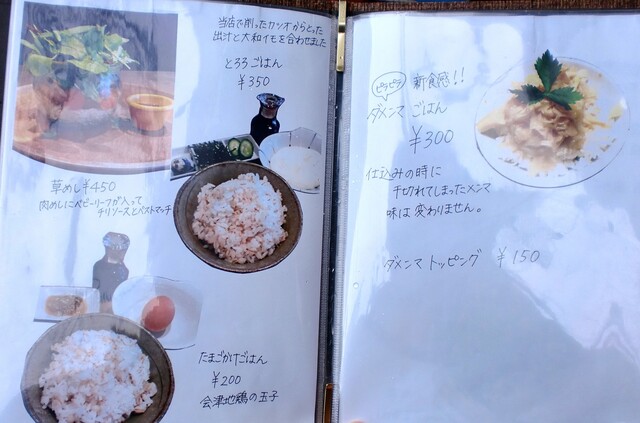 当店で削ったカツオからとった
出汁と大和イモを合わせました
とろろごはん
¥350
草めし¥450
肉めしにベビーリーフが入って
チリソースとベストマッチ
たまごかけごはん
¥200
会津地鶏の玉子
ピラピラ 新食感!!
ダメンマ ごはん
¥300
仕込みの時に
千切れてしまったメンマ
味は変わりません。
ダメンマ トッピング ¥150